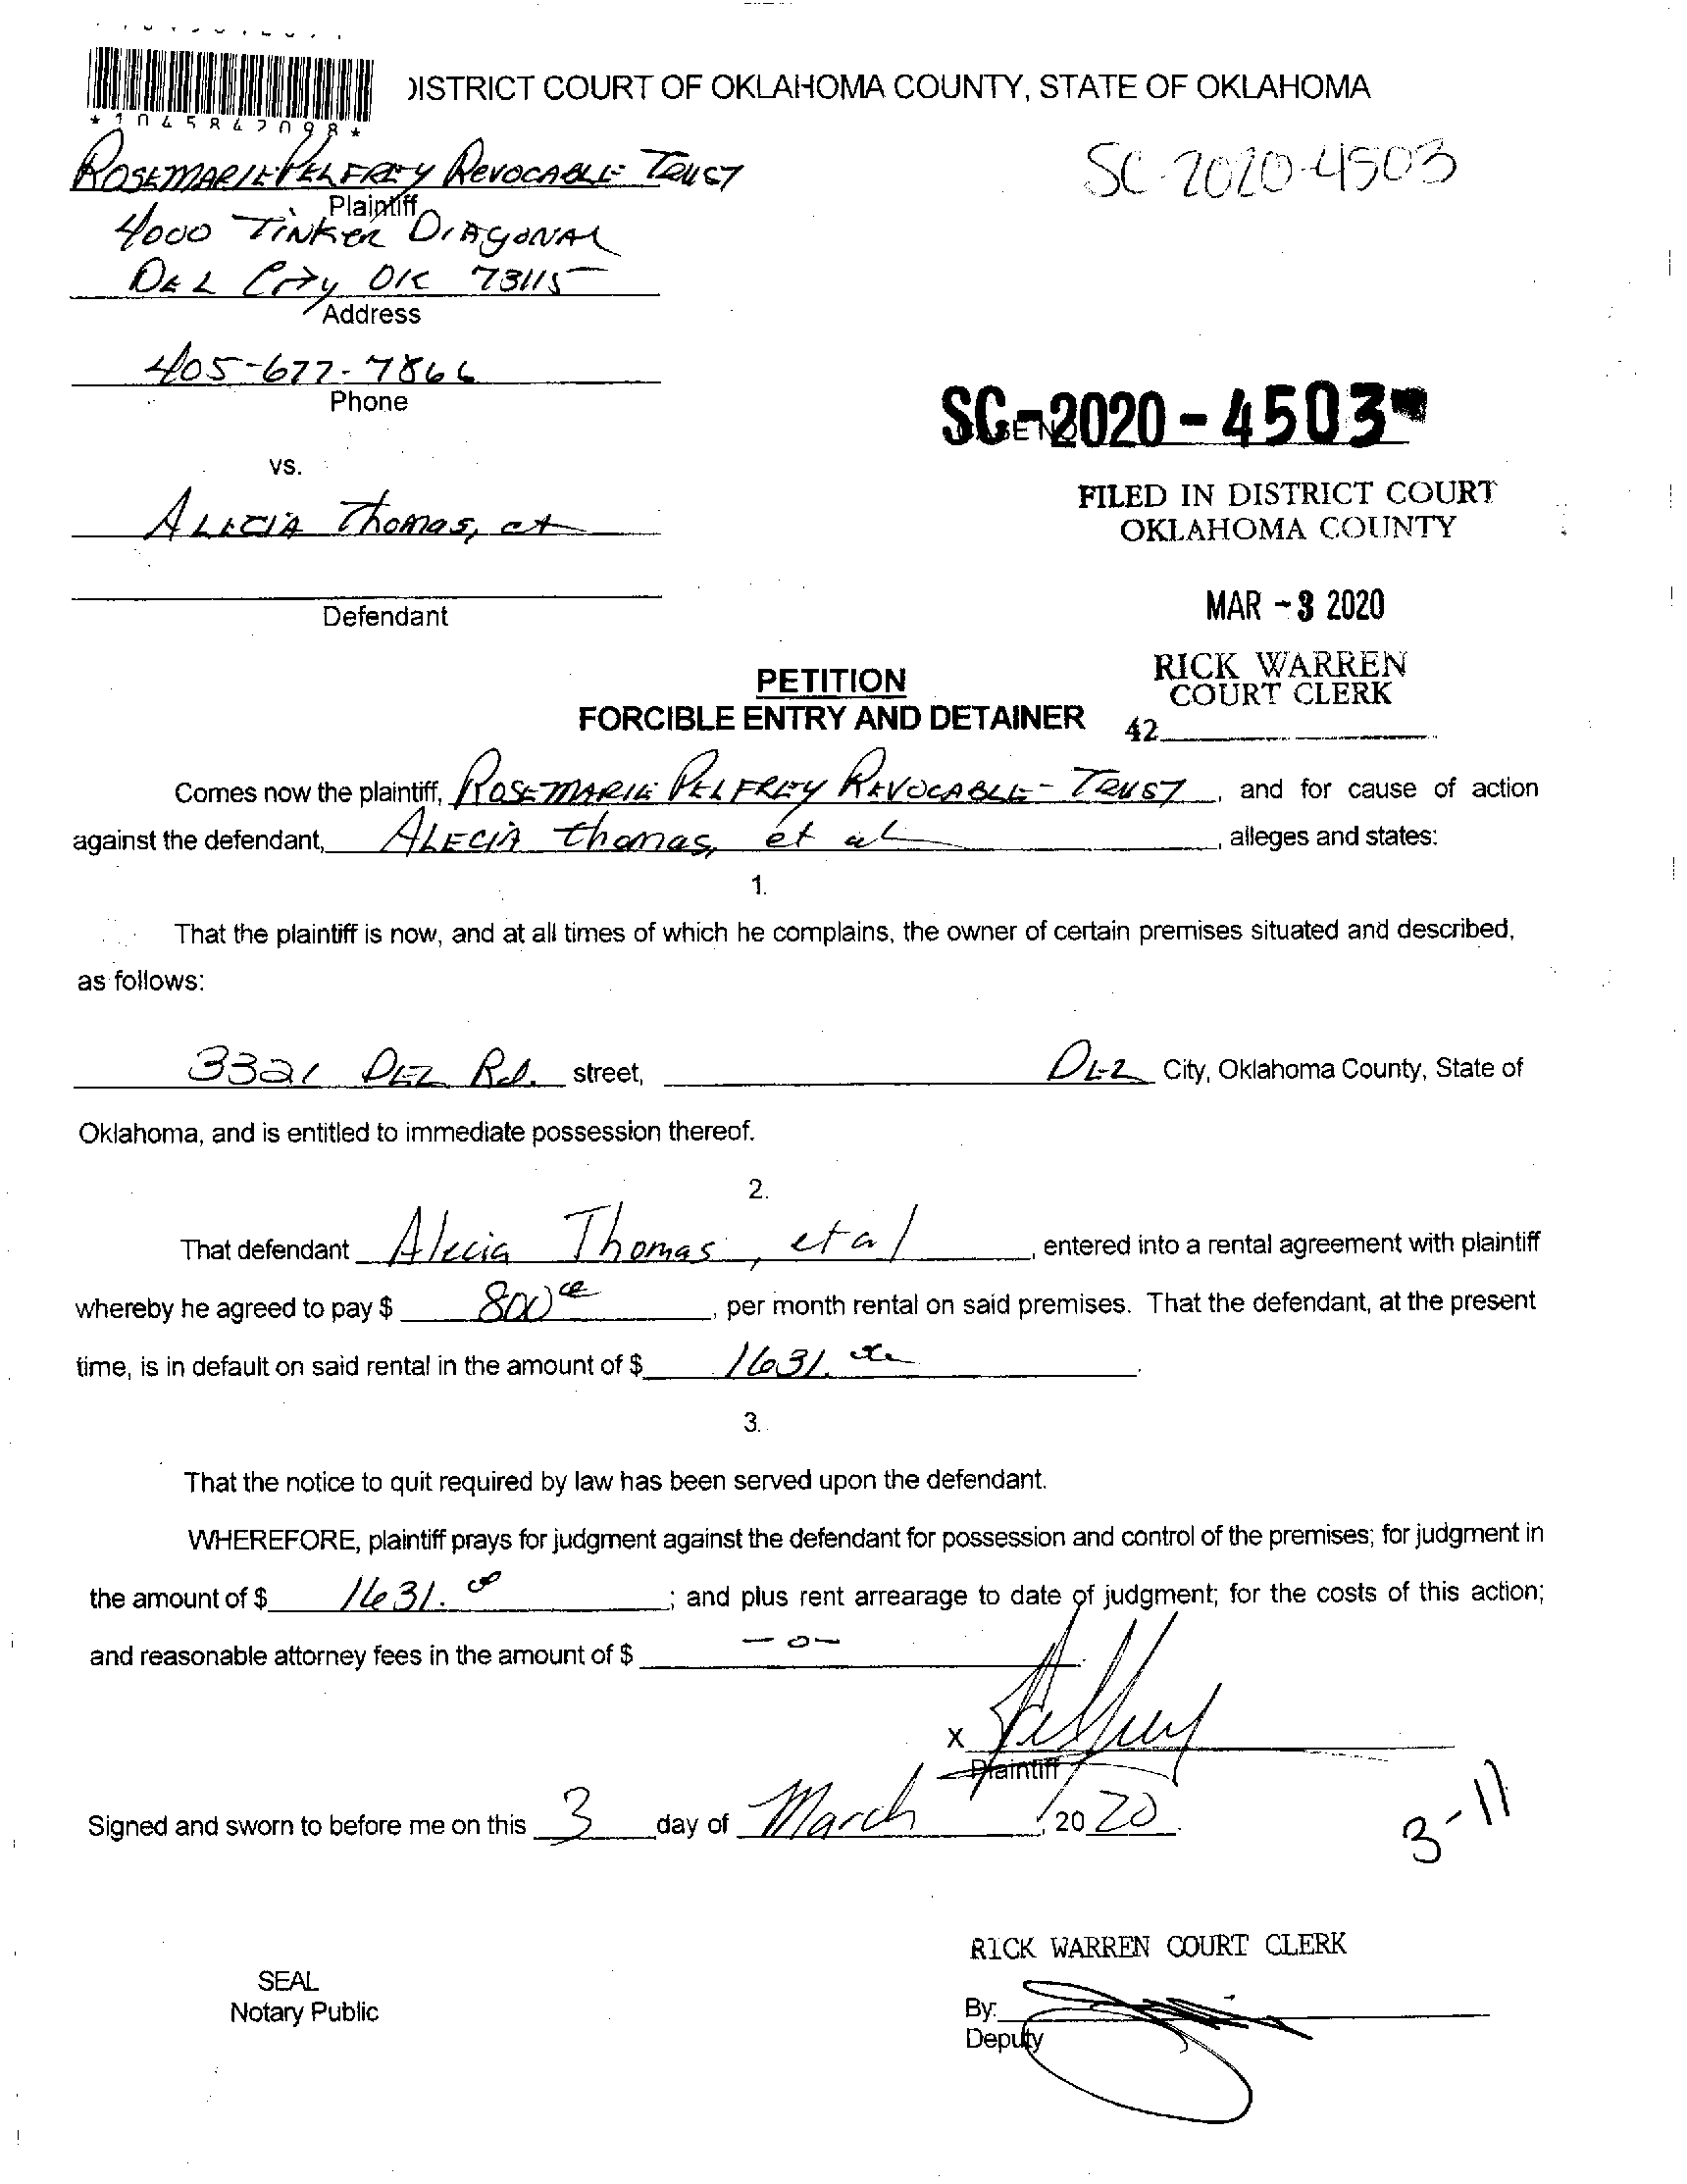 DISTRICT COURT OF OKLAHOMA COUNTY, STATE OF OKLAHOMA
*1045842098*
ROSEMARIE PELFREY REVOCABLE TRUST
SC-2020-4503
Plaintiff
4000 TINKER DIAGONAL
DEL City OK 73115
Address
405-677-7866
Phone
SC-2020-4503
vs.
FILED IN DISTRICT COURT
OKLAHOMA COUNTY
ALECIA Thomas, et
MAR -3 2020
Defendant
RICK WARREN
COURT CLERK
42
PETITION
FORCIBLE ENTRY AND DETAINER
Comes now the plaintiff, ROSEMARIE PELFREY REVOCABLE TRUST, and for cause of action
against the defendant, ALECIA thomas, et al, alleges and states:
1.
That the plaintiff is now, and at all times of which he complains, the owner of certain premises situated and described,
as follows:
3321 DEL Rd. street, DEL City, Oklahoma County, State of
Oklahoma, and is entitled to immediate possession thereof.
2.
That defendant Alecia Thomas, et al, entered into a rental agreement with plaintiff
whereby he agreed to pay $ 800, per month rental on said premises. That the defendant, at the present
time, is in default on said rental in the amount of $ 1631.
3.
That the notice to quit required by law has been served upon the defendant.
WHEREFORE, plaintiff prays for judgment against the defendant for possession and control of the premises; for judgment in
the amount of $ 1631. ; and plus rent arrearage to date of judgment; for the costs of this action;
and reasonable attorney fees in the amount of $ -0-
X Pelfrey
Plaintiff
Signed and sworn to before me on this 3 day of March, 2020.
3-11
RICK WARREN COURT CLERK
SEAL
Notary Public
By:
Deputy